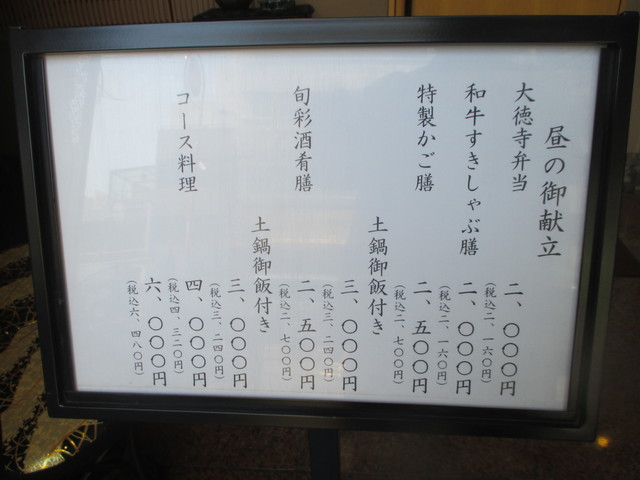 昼の御献立
大徳寺弁当
二、〇〇〇円
(税込二、一六〇円)
和牛すきしゃぶ膳
二、〇〇〇円
(税込二、一六〇円)
特製かご膳
二、五〇〇円
(税込二、七〇〇円)
土鍋御飯付き
三、〇〇〇円
(税込三、二四〇円)
旬彩酒肴膳
二、五〇〇円
(税込二、七〇〇円)
土鍋御飯付き
三、〇〇〇円
(税込三、二四〇円)
コース料理
四、〇〇〇円
(税込四、三二〇円)
六、〇〇〇円
(税込六、四八〇円)